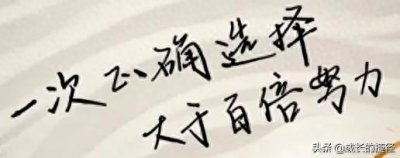 一次正确选择
大于百倍努力
头条 @成长的路径